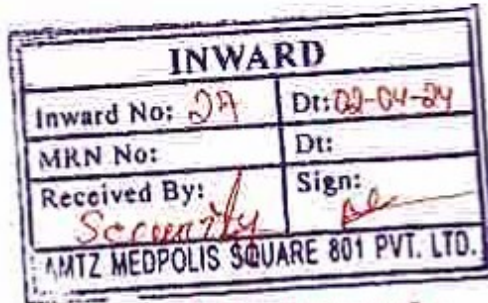 INWARD
Inward No: 27 Dt: 02-04-24
MRN No: Dt:
Received By: Sign:
Security
AMTZ MEDPOLIS SQUARE 801 PVT. LTD.